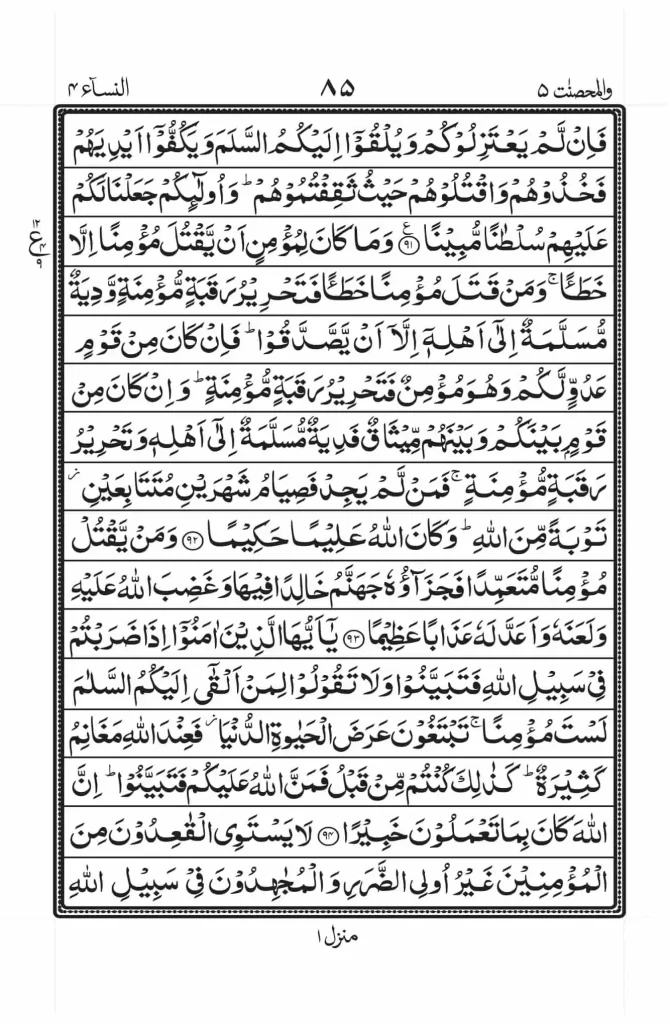 والمحصنت ۵ ۸۵ النسآء ۴
فَاِنْ لَّمْ يَعْتَزِلُوْكُمْ وَيُلْقُوْٓا اِلَيْكُمُ السَّلَمَ وَيَكُفُّوْٓا اَيْدِيَهُمْ
فَخُذُوْهُمْ وَاقْتُلُوْهُمْ حَيْثُ ثَقِفْتُمُوْهُمْ ؕ وَاُولٰٓئِكُمْ جَعَلْنَا لَكُمْ
عَلَيْهِمْ سُلْطٰنًا مُّبِيْنًا ۹۱ ع وَمَا كَانَ لِمُؤْمِنٍ اَنْ يَّقْتُلَ مُؤْمِنًا اِلَّا
۱۲ ع ۴ ۹
خَطَـًٔا ۚ وَمَنْ قَتَلَ مُؤْمِنًا خَطَـًٔا فَتَحْرِيْرُ رَقَبَةٍ مُّؤْمِنَةٍ وَّدِيَةٌ
مُّسَلَّمَةٌ اِلٰٓى اَهْلِهٖٓ اِلَّآ اَنْ يَّصَّدَّقُوْا ؕ فَاِنْ كَانَ مِنْ قَوْمٍ
عَدُوٍّ لَّكُمْ وَهُوَ مُؤْمِنٌ فَتَحْرِيْرُ رَقَبَةٍ مُّؤْمِنَةٍ ؕ وَاِنْ كَانَ مِنْ
قَوْمٍۭ بَيْنَكُمْ وَبَيْنَهُمْ مِّيْثَاقٌ فَدِيَةٌ مُّسَلَّمَةٌ اِلٰٓى اَهْلِهٖ وَتَحْرِيْرُ
رَقَبَةٍ مُّؤْمِنَةٍ ۚ فَمَنْ لَّمْ يَجِدْ فَصِيَامُ شَهْرَيْنِ مُتَتَابِعَيْنِ ز
تَوْبَةً مِّنَ اللّٰهِ ؕ وَكَانَ اللّٰهُ عَلِيْمًا حَكِيْمًا ۹۲ وَمَنْ يَّقْتُلْ
مُؤْمِنًا مُّتَعَمِّدًا فَجَزَآؤُهٗ جَهَنَّمُ خَالِدًا فِيْهَا وَغَضِبَ اللّٰهُ عَلَيْهِ
وَلَعَنَهٗ وَاَعَدَّ لَهٗ عَذَابًا عَظِيْمًا ۹۳ يٰٓاَيُّهَا الَّذِيْنَ اٰمَنُوْٓا اِذَا ضَرَبْتُمْ
فِيْ سَبِيْلِ اللّٰهِ فَتَبَيَّنُوْا وَلَا تَقُوْلُوْا لِمَنْ اَلْقٰٓى اِلَيْكُمُ السَّلٰمَ
لَسْتَ مُؤْمِنًا ۚ تَبْتَغُوْنَ عَرَضَ الْحَيٰوةِ الدُّنْيَا ز فَعِنْدَ اللّٰهِ مَغَانِمُ
كَثِيْرَةٌ ؕ كَذٰلِكَ كُنْتُمْ مِّنْ قَبْلُ فَمَنَّ اللّٰهُ عَلَيْكُمْ فَتَبَيَّنُوْا ؕ اِنَّ
اللّٰهَ كَانَ بِمَا تَعْمَلُوْنَ خَبِيْرًا ۹۴ لَا يَسْتَوِي الْقٰعِدُوْنَ مِنَ
الْمُؤْمِنِيْنَ غَيْرُ اُولِي الضَّرَرِ وَالْمُجٰهِدُوْنَ فِيْ سَبِيْلِ اللّٰهِ
منزل ۱